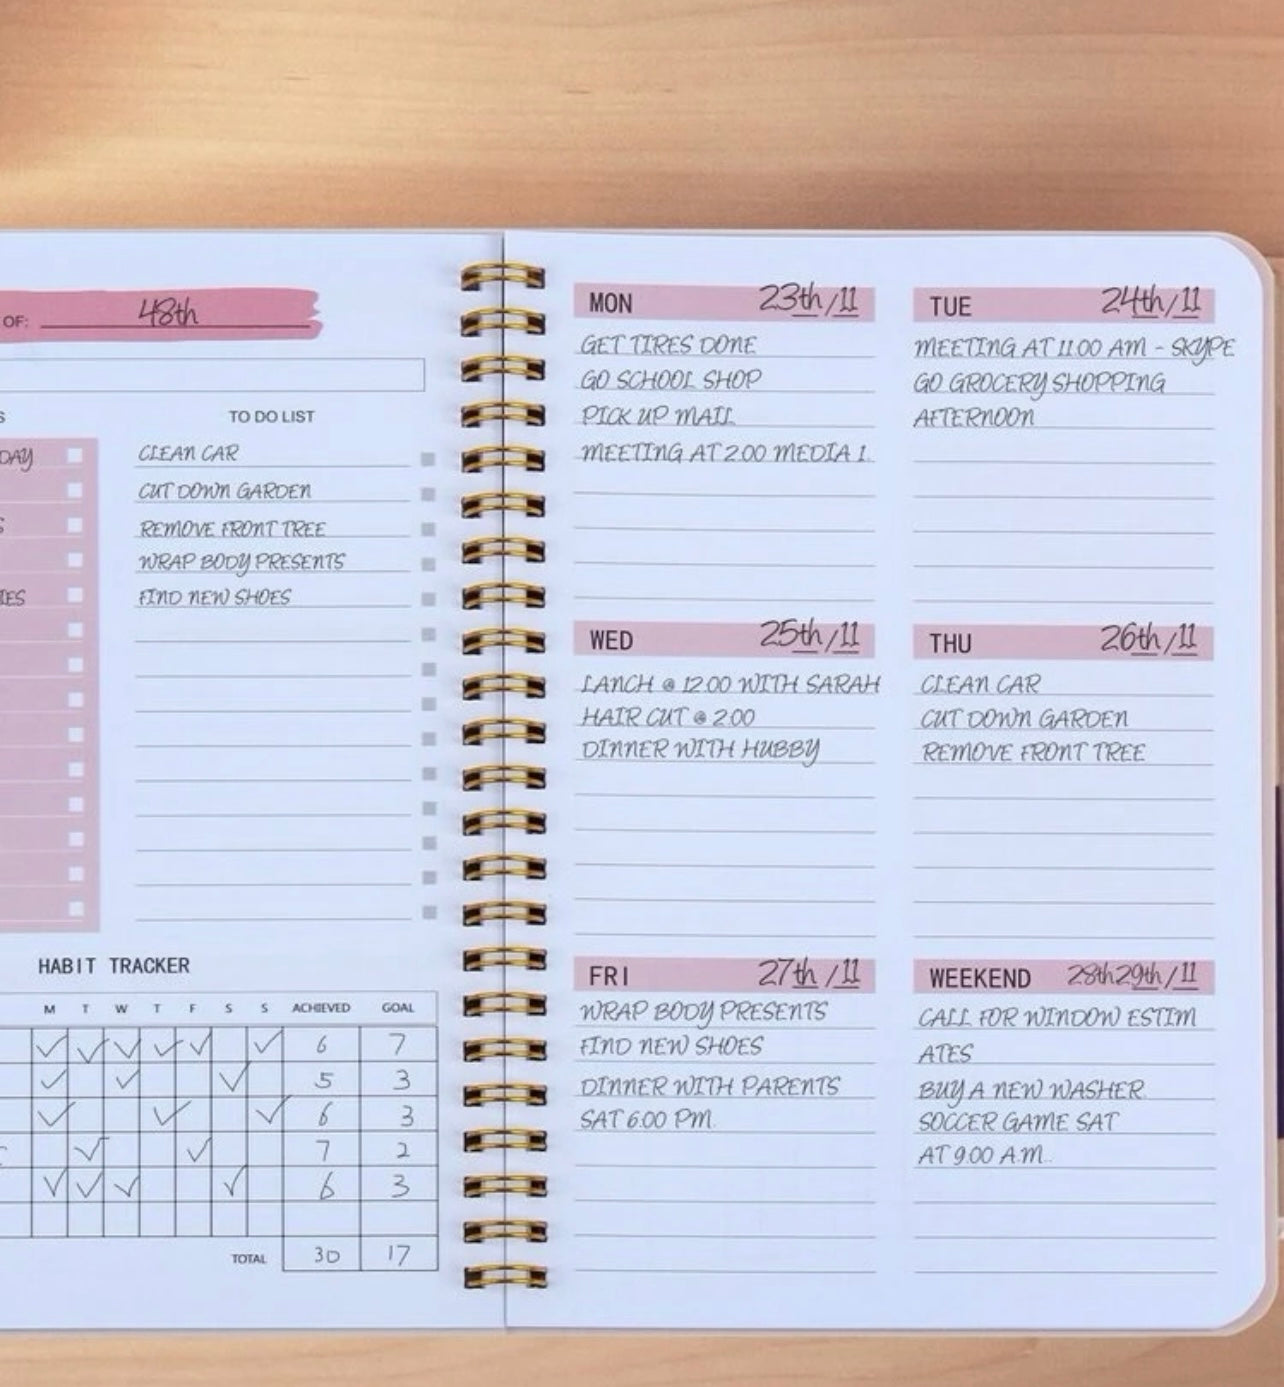 OF: 48th
TO DO LIST
CLEAN CAR
CUT DOWN GARDEN
REMOVE FRONT TREE
WRAP BODY PRESENTS
FIND NEW SHOES
S
DAY
S
IES
HABIT TRACKER
M T W T F S S ACHIEVED GOAL
6 7
5 3
6 3
7 2
6 3
TOTAL 30 17
MON 23th/11
GET TIRES DONE
GO SCHOOL SHOP
PICK UP MAIL
MEETING AT 2.00 MEDIA 1.
TUE 24th/11
MEETING AT 11.00 AM - SKYPE
GO GROCERY SHOPPING
AFTERNOON
WED 25th/11
LANCH @ 12.00 WITH SARAH
HAIR CUT @ 2.00
DINNER WITH HUBBY
THU 26th/11
CLEAN CAR
CUT DOWN GARDEN
REMOVE FRONT TREE
FRI 27th/11
WRAP BODY PRESENTS
FIND NEW SHOES
DINNER WITH PARENTS
SAT 6:00 PM.
WEEKEND 28th29th/11
CALL FOR WINDOW ESTIM
ATES
BUY A NEW WASHER.
SOCCER GAME SAT
AT 9.00 A.M..